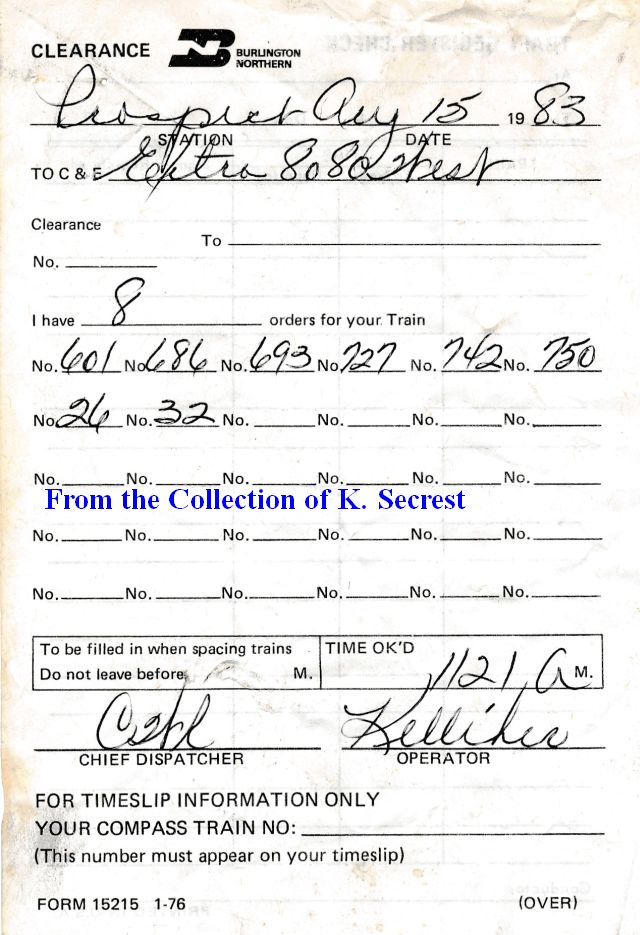 CLEARANCE BN BURLINGTON NORTHERN
Prospect Aug 15 1983
STATION DATE
TO C & E Extra 8080 West
Clearance
To
No.
I have 8 orders for your Train
No. 601 No. 686 No. 693 No. 727 No. 742 No. 750
No. 26 No. 32 No. No. No. No.
No. No. No. No. No. No.
From the Collection of K. Secrest
No. No. No. No. No. No.
No. No. No. No. No. No.
To be filled in when spacing trains TIME OK'D
Do not leave before M. 1121 A M.
Kelliher
CHIEF DISPATCHER OPERATOR
FOR TIMESLIP INFORMATION ONLY
YOUR COMPASS TRAIN NO:
(This number must appear on your timeslip)
FORM 15215 1-76 (OVER)